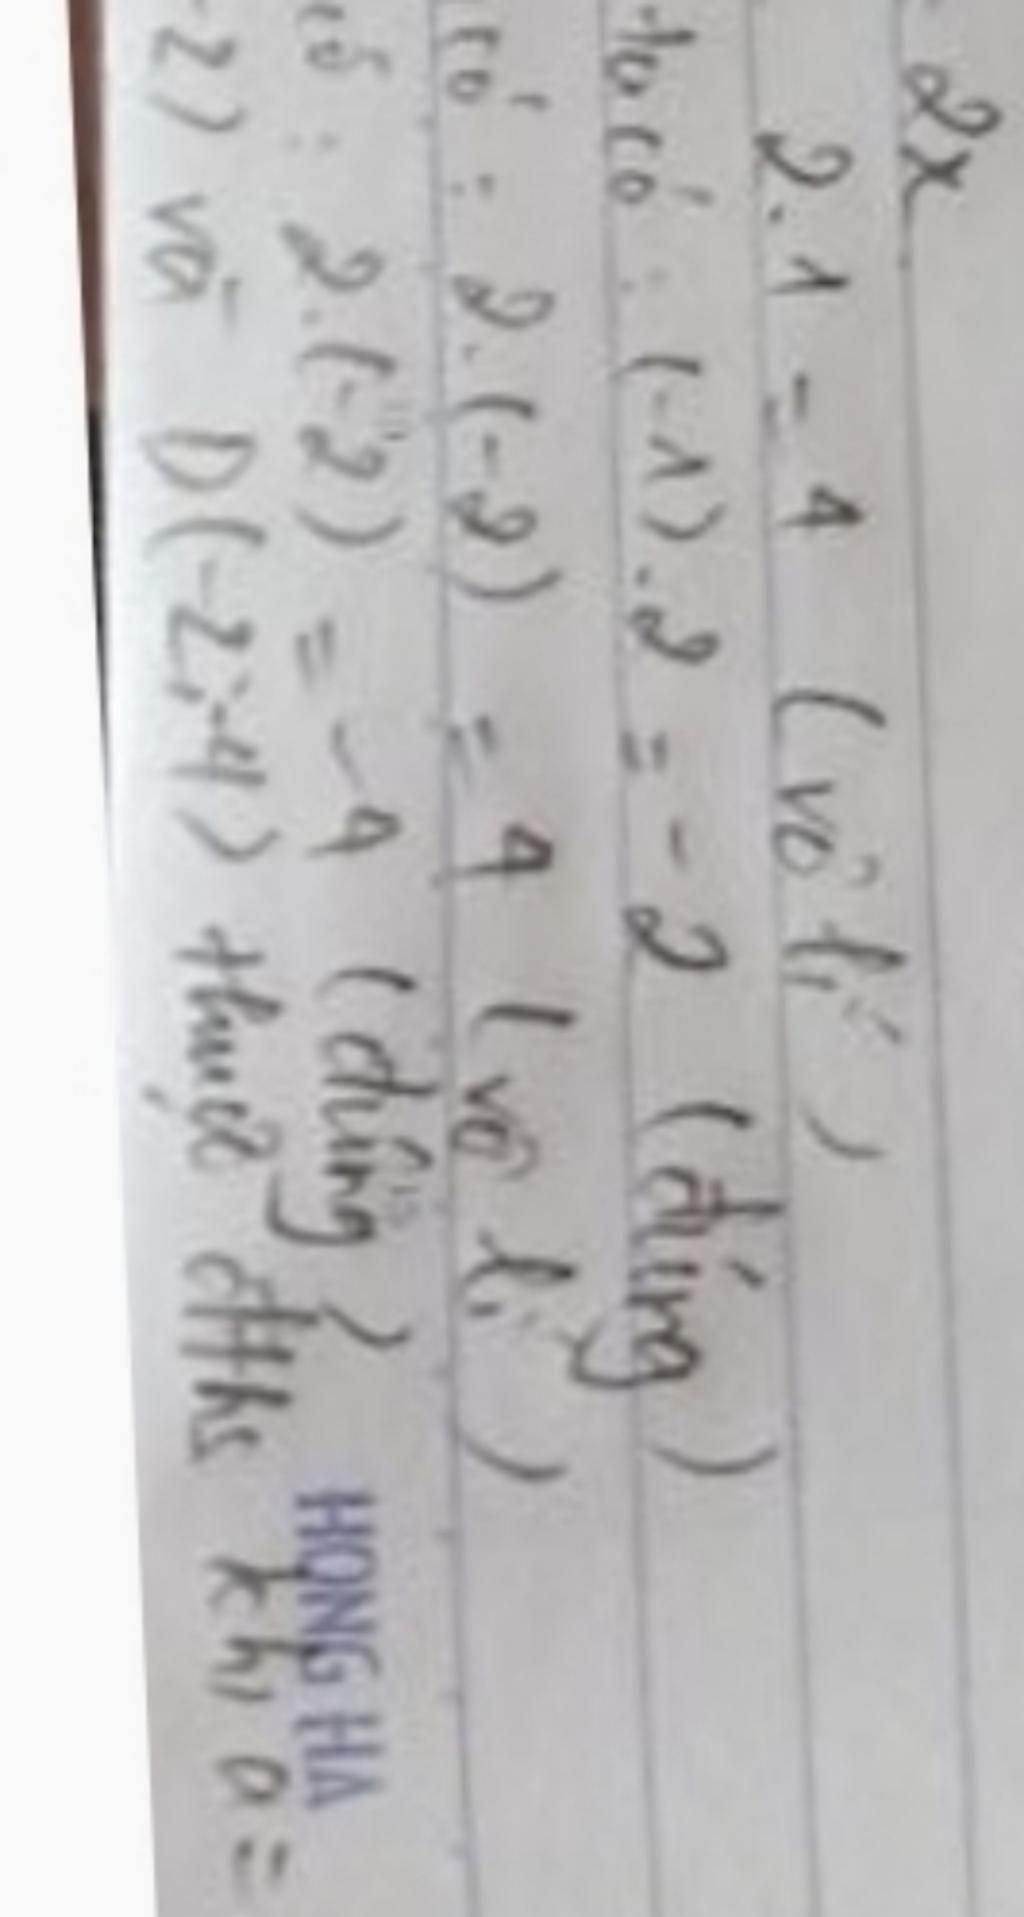 2x
2.1 = 4 (vô lí)
ta có : (-1).2 = -2 (đúng)
có : 2.(-2) = 4 (vô lí)
có : 2.(-2) = -4 (đúng)
HONG HA
-2) và D(-2;-4) thuộc đths khi a =